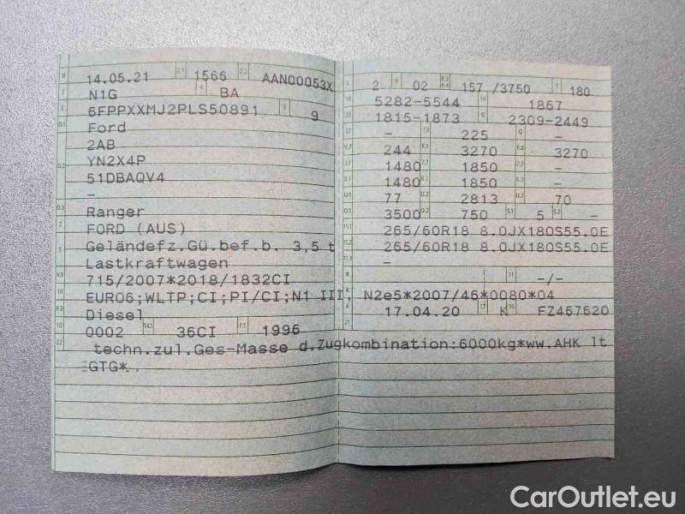 14.05.21 1566 AAN00053X
N1G BA
6FPPXXMJ2PLS50891 9
Ford
2AB
YN2X4P
51DBAQV4
-
Ranger
FORD (AUS)
Geländefz.Gü.bef.b. 3,5 t
Lastkraftwagen
715/2007*2018/1832CI
EURO6;WLTP;CI;PI/CI;N1 III, N2
Diesel
0002 36CI 1996
techn.zul.Ges-Masse d.Zugkombination:6000kg*ww.AHK lt
EGTG*.
2 02 157 /3750 180
5282-5544 1867
1815-1873 2309-2449
- 225 -
244 3270 3270
1480 1850 -
1480 1850 -
77 2813 70
3500 750 5 -
265/60R18 8.0JX18OS55.0E
265/60R18 8.0JX18OS55.0E
-
-/-
e5*2007/46*0080*04
17.04.20 K FZ467620
CarOutlet.eu